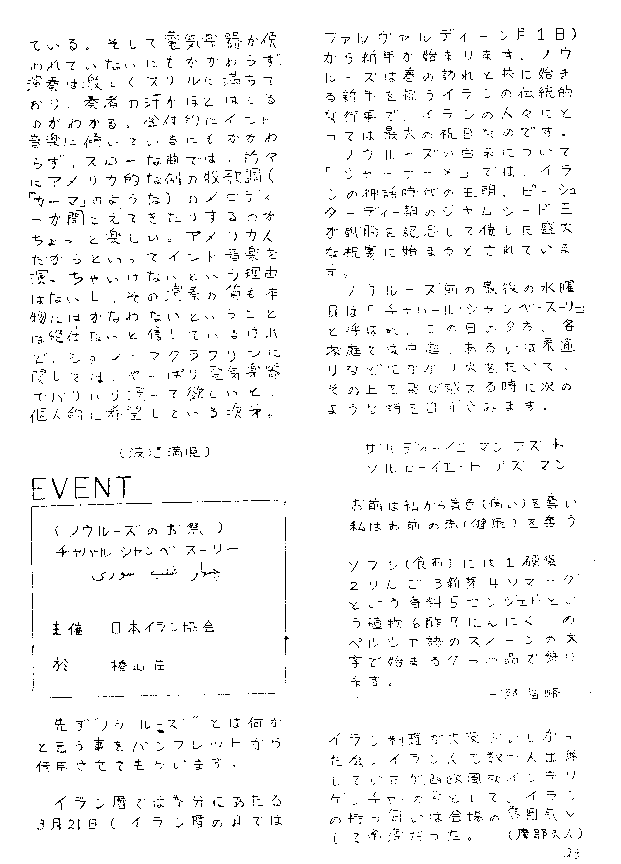 ている。そして電気楽器が使
われていないにもかかわらず、
演奏は激しくスリルに満ちて
おり、奏者の汗がほとばしる
のがわかる。全体的にインド
音楽に傾いているにもかかわ
らず、スローな曲では、時々
にアメリカ的な例の牧歌調(
「カーマ」のような)のメロディ
ーが聞こえてきたりするのが
ちょっと楽しい。アメリカ人
だからといってインド音楽を
演っちゃいけないという理由
はないし、その演奏の質も本
物にはかなわないということ
は絶対ないと信じているけれ
ど、ジョン・マクラフリンに
関しては、やっぱり電気楽器
でバリバリ演って欲しいと、
個人的に希望している次第。
EVENT
(ノウルーズのお祭)
チャハル シャンベ スーリー
主催 日本イラン協会
於
先ず"ノウルーズ"とは何か
と言う事をパンフレットから
使用させてもらいます。
イラン暦では春分にあたる
3月21日(イラン暦の月では
ファルヴァルディーン月1日)
から新年が始まります。ノウ
ルーズは春の訪れと共に始ま
る新年を祝うイランの伝統的
な行事で、イランの人々にと
っては最大の祝日なのです。
ノウルーズの由来について
「シャーナーメ」では、イラ
ンの神話時代の王朝、ピーシュ
ダーディー朝のジャムシード王
が戴冠を記念して催した盛大
な祝宴に始まるとされていま
す。
ノウルーズ前の最後の水曜
日は「チャハール・シャンベ・スーリー」
と呼ばれ、この日の夕方、各
家庭では中庭、あるいは表通
りなどでたき火をたいて、
その上を飛び越える時に次の
ような詩を口ずさみます。
ザルディーイエ マン アズ ト
ソルヒーイエ ト アズ マン
お前は私から黄色(病い)を奪い
私はお前の赤(健康)を奪う
ソフレ(食布)には1硬貨
2りんご 3新芽 4ソマーグ
という香料 5センジェドとい
う植物 6酢 7にんにく の
ペルシア語のスィーンの文
字で始まる7つの品で飾り
ます。
イラン料理が大変おいしかっ
た会。イラン人も数十人出席
していたが
して